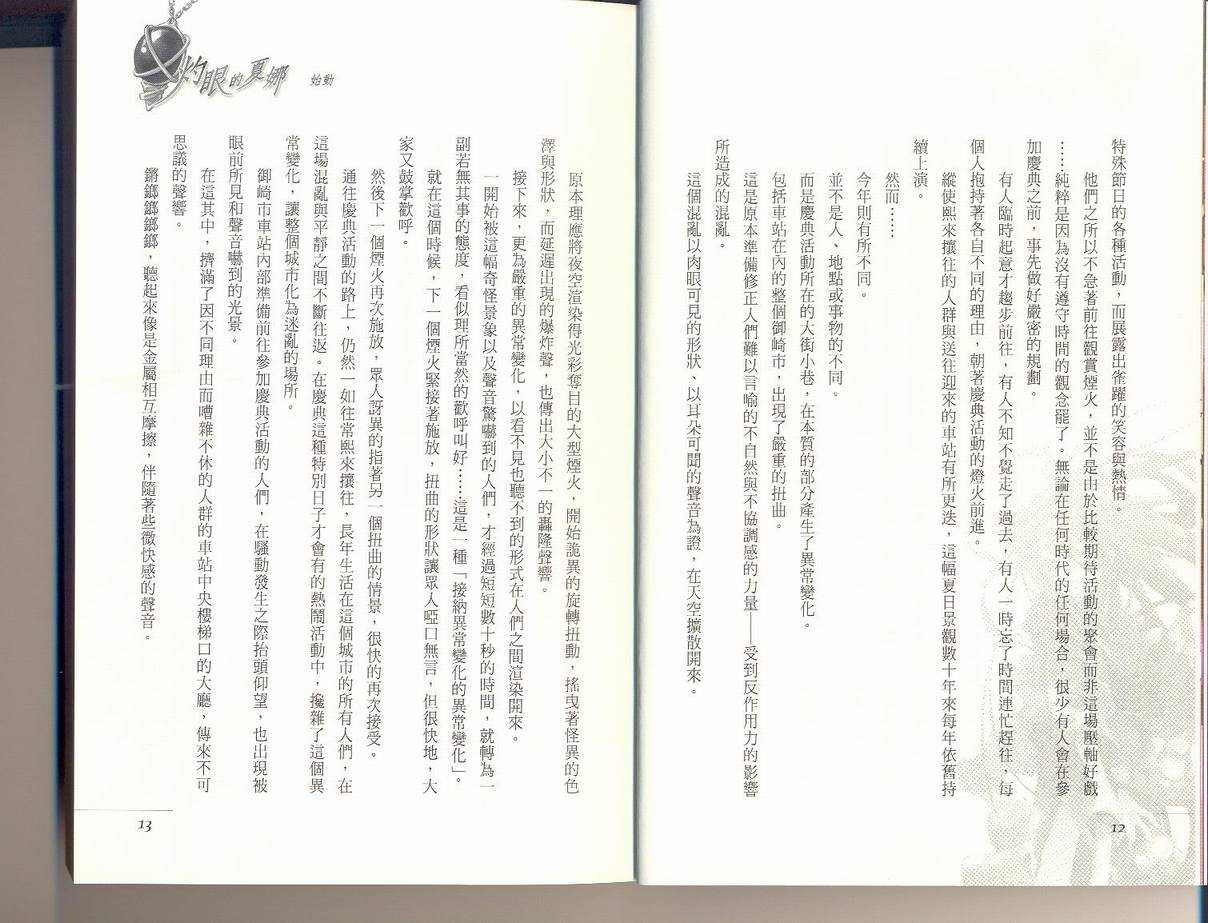 特殊節日的各種活動，而展露出雀躍的笑容與熱情。
他們之所以不急著前往觀賞煙火，並不是由於比較期待活動的聚會而非這場壓軸好戲
……純粹是因為沒有遵守時間的觀念罷了。無論在任何時代的任何場合，很少有人會在參
加慶典之前，事先做好嚴密的規劃。
有人臨時起意才趨步前往，有人不知不覺走了過去，有人一時忘了時間連忙趕往，每
個人抱持著各自不同的理由，朝著慶典活動的燈火前進。
縱使熙來攘往的人群與送往迎來的車站有所更迭，這幅夏日景觀數十年來每年依舊持
續上演。
然而……
今年則有所不同。
並不是人、地點或事物的不同。
而是慶典活動所在的大街小巷，在本質的部分產生了異常變化。
包括車站在內的整個御崎市，出現了嚴重的扭曲。
這是原本準備修正人們難以言喻的不自然與不協調感的力量——受到反作用力的影響
所造成的混亂。
這個混亂以肉眼可見的形狀、以耳朵可聞的聲音為證，在天空擴散開來。
12
灼眼的夏娜 始動
原本理應將夜空渲染得光彩奪目的大型煙火，開始詭異的旋轉扭動，搖曳著怪異的色
澤與形狀，而延遲出現的爆炸聲，也傳出大小不一的轟隆聲響。
接下來，更為嚴重的異常變化，以看不見也聽不到的形式在人們之間渲染開來。
一開始被這幅奇怪景象以及聲音驚嚇到的人們，才經過短短數十秒的時間，就轉為一
副若無其事的態度，看似理所當然的歡呼叫好……這是一種「接納異常變化的異常變化」。
就在這個時候，下一個煙火緊接著施放，扭曲的形狀讓眾人啞口無言，但很快地，大
家又鼓掌歡呼。
然後下一個煙火再次施放，眾人訝異的指著另一個扭曲的情景，很快的再次接受。
通往慶典活動的路上，仍然一如往常熙來攘往，長年生活在這個城市的所有人們，在
這場混亂與平靜之間不斷往返。在慶典這種特別日子才會有的熱鬧活動中，攙雜了這個異
常變化，讓整個城市化為迷亂的場所。
御崎市車站內部準備前往參加慶典活動的人們，在騷動發生之際抬頭仰望，也出現被
眼前所見和聲音嚇到的光景。
在這其中，擠滿了因不同理由而嘈雜不休的人群的車站中央樓梯口的大廳，傳來不可
思議的聲響。
鏘鎯鎯鎯鎯，聽起來像是金屬相互摩擦，伴隨著些微快感的聲音。
13